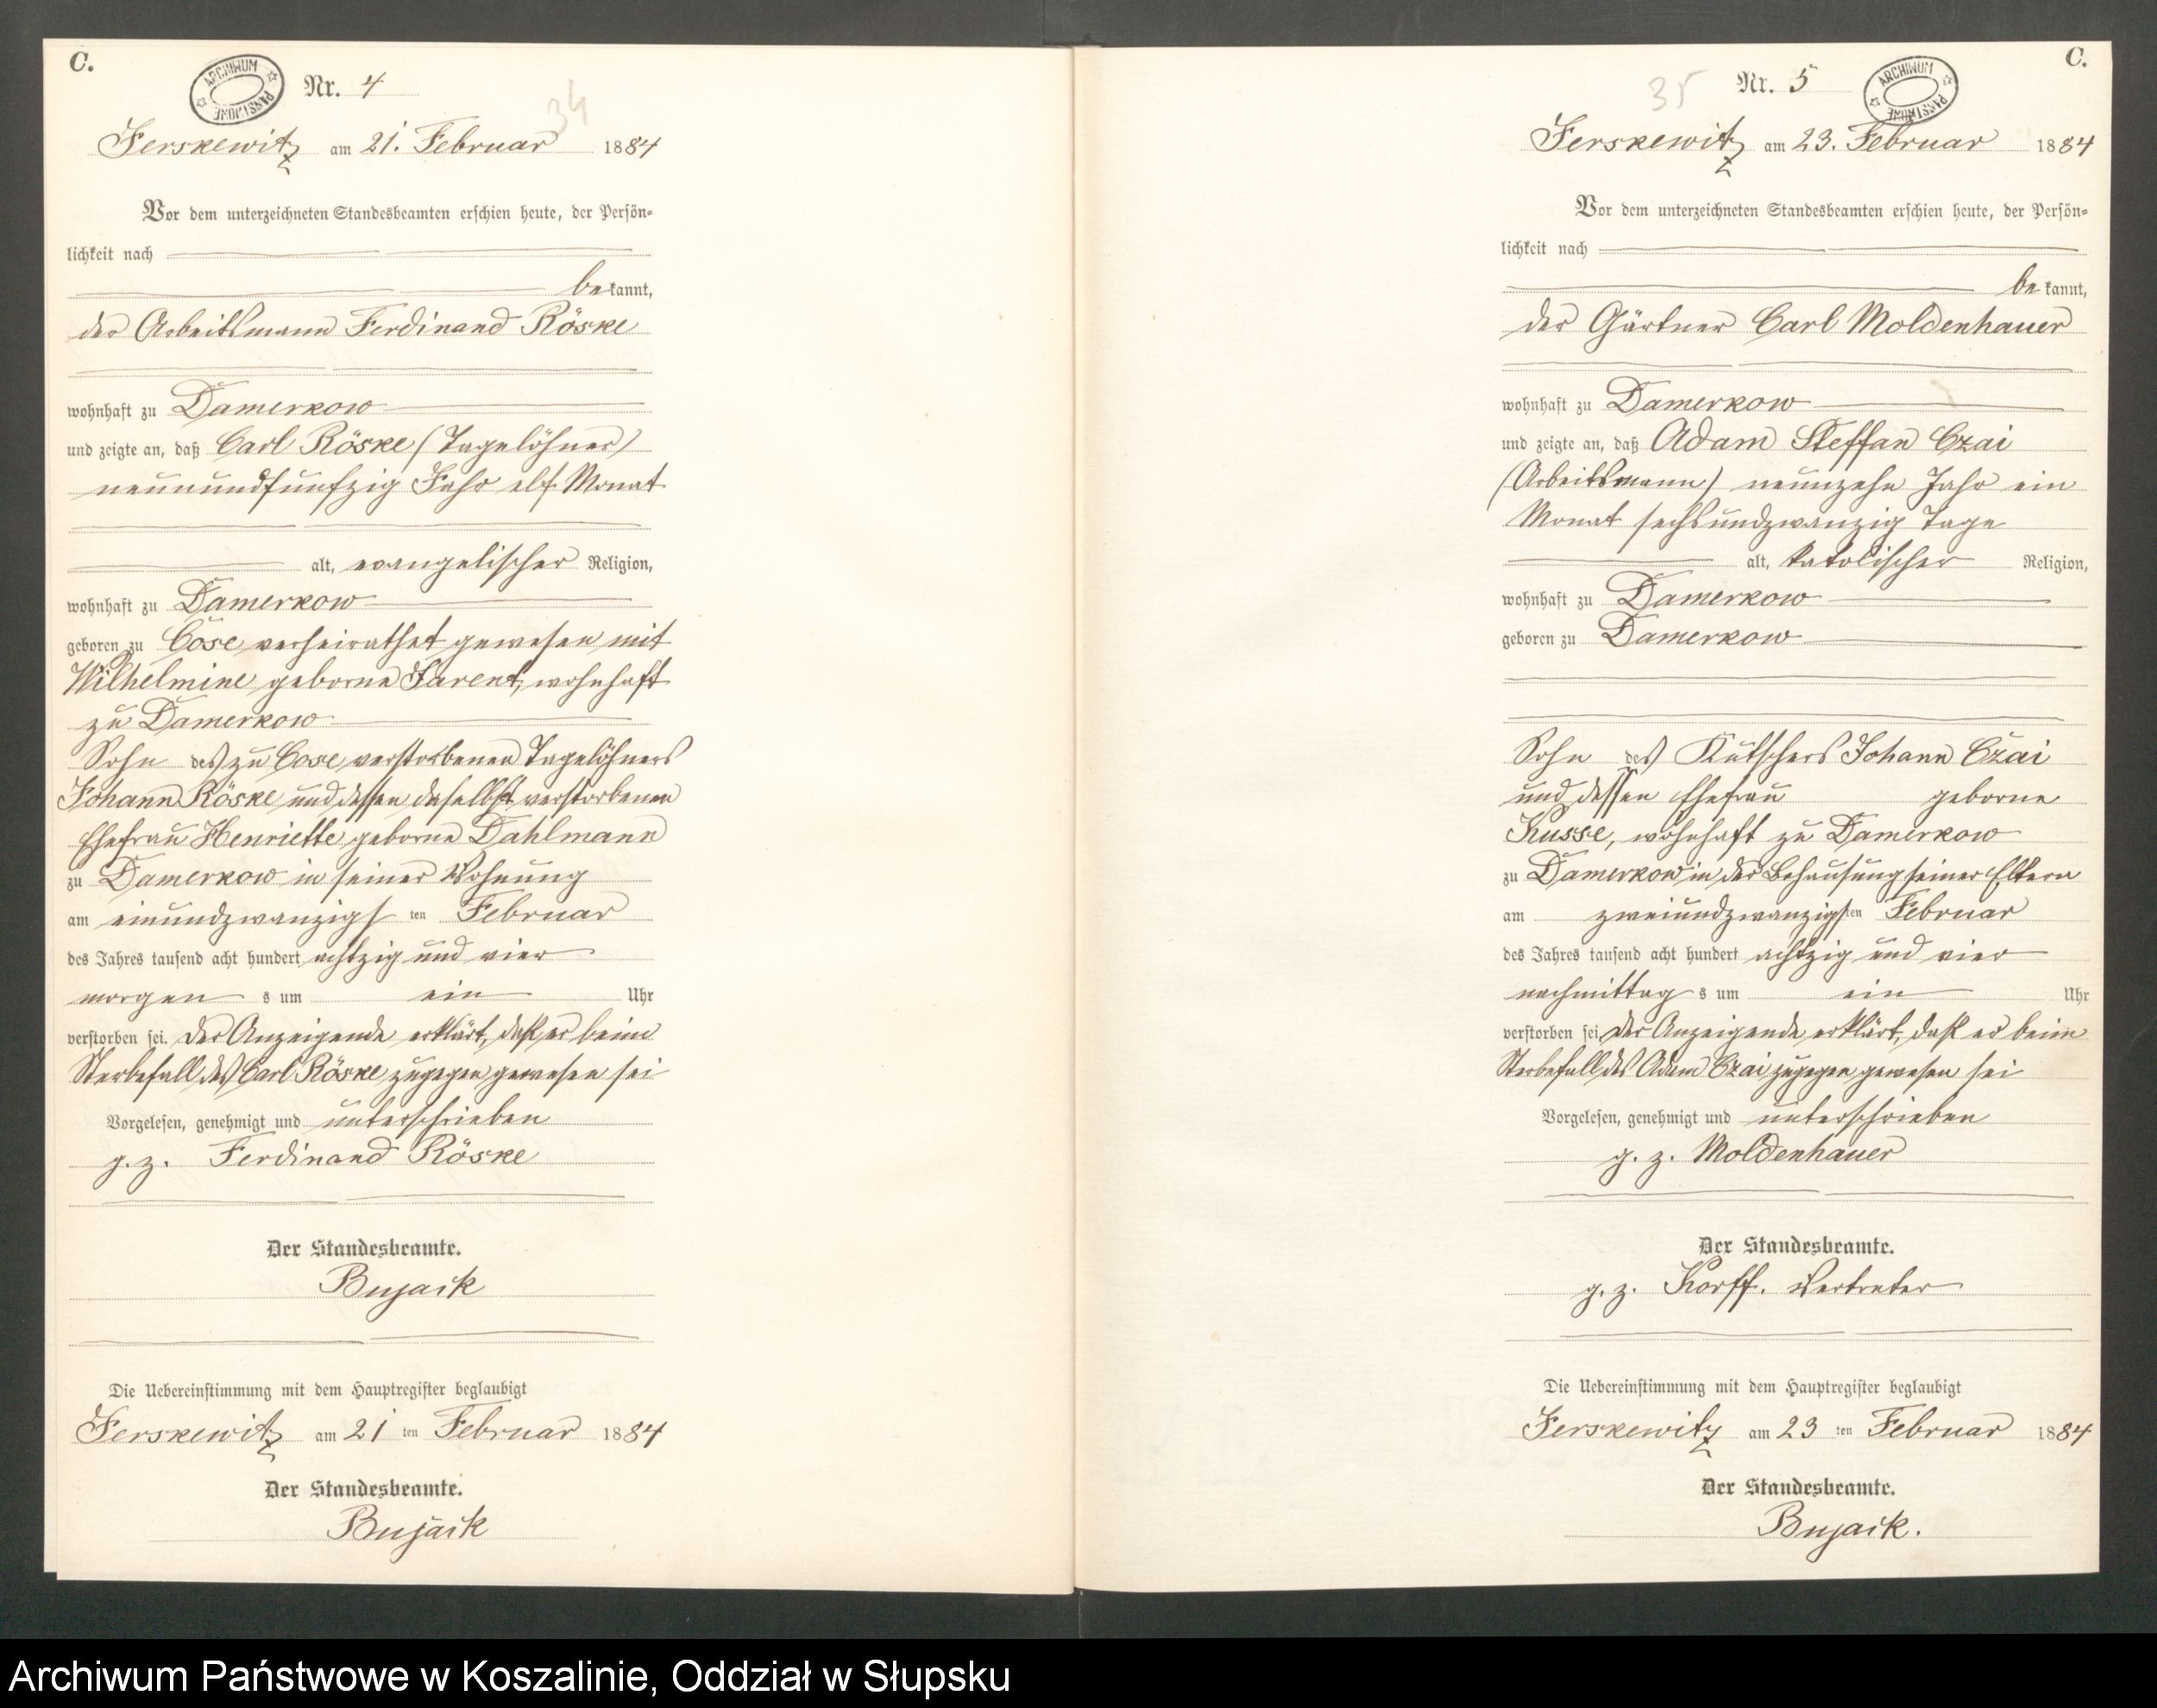 C.
ARCHIWUM PAŃSTWOWE
Nr. 4
34
Jerskewitz am 21. Februar 1884
Vor dem unterzeichneten Standesbeamten erschien heute, der Persön-
lichkeit nach
be kannt,
der Arbeitsmann Ferdinand Röske
wohnhaft zu Damerkow
und zeigte an, daß Carl Röske (Tagelöhner)
neunundfünfzig Jahr elf Monat
alt, evangelischer Religion,
wohnhaft zu Damerkow
geboren zu Cose, verheirathet gewesen mit
Wilhelmine geborne Farent, wohnhaft
zu Damerkow
Sohn des zu Cose verstorbenen Tagelöhners
Johann Röske und dessen daselbst verstorbenen
Ehefrau Henriette geborne Dahlmann
zu Damerkow in seiner Wohnung
am einundzwanzigs ten Februar
des Jahres tausend acht hundert achtzig und vier
morgen s um ein Uhr
verstorben sei. Der Anzeigende erklärt, daß er beim
Sterbefall des Carl Röske zugegen gewesen sei
Vorgelesen, genehmigt und unterschrieben
g. z. Ferdinand Röske
Der Standesbeamte.
Bujack
Die Uebereinstimmung mit dem Hauptregister beglaubigt
Jerskewitz am 21 ten Februar 1884
Der Standesbeamte.
Bujack
C.
35
Nr. 5
ARCHIWUM PAŃSTWOWE
Jerskewitz am 23. Februar 1884
Vor dem unterzeichneten Standesbeamten erschien heute, der Persön-
lichkeit nach
be kannt,
der Gärtner Carl Moldenhauer
wohnhaft zu Damerkow
und zeigte an, daß Adam Steffan Czai
(Arbeitsmann) neunzehn Jahr ein
Monat sechsundzwanzig Tage
alt, katolischer Religion,
wohnhaft zu Damerkow
geboren zu Damerkow
Sohn des Kutschers Johann Czai
und dessen Ehefrau geborne
Kusse, wohnhaft zu Damerkow
zu Damerkow in der Behausung seiner Eltern
am zweiundzwanzigs ten Februar
des Jahres tausend acht hundert achtzig und vier
nachmittag s um ein Uhr
verstorben sei. Der Anzeigende erklärt, daß er beim
Sterbefall des Adam Czai zugegen gewesen sei
Vorgelesen, genehmigt und unterschrieben
g. z. Moldenhauer
Der Standesbeamte.
g. z. Korff. Vertreter
Die Uebereinstimmung mit dem Hauptregister beglaubigt
Jerskewitz am 23 ten Februar 1884
Der Standesbeamte.
Bujack.
Archiwum Państwowe w Koszalinie, Oddział w Słupsku